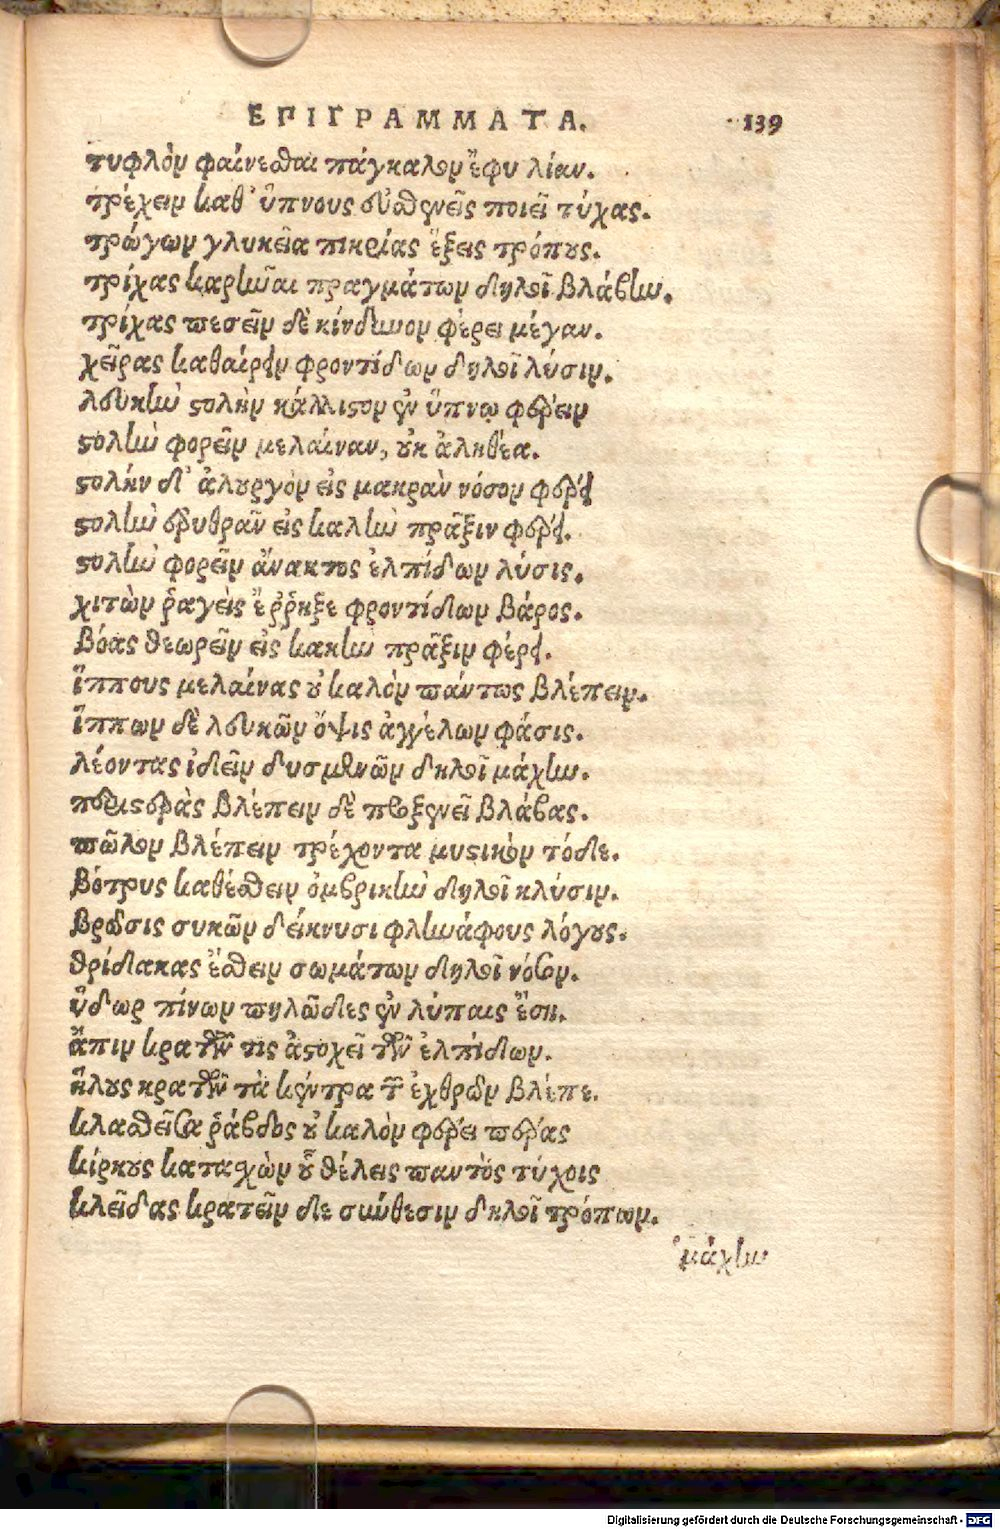 ΕΠΙΓΡΑΜΜΑΤΑ. 139
τυφλὸν φαίνεσθαι πάγκαλον ἔφυ λίαν.
τρέχειν καθ' ὕπνους εὐσθενεῖς ποιεῖ τύχας.
τρώγων γλυκεῖα πικρίας ἕξεις τρόπους.
τρίχας καρῆναι πραγμάτων δηλοῖ βλάβην.
τρίχας πεσεῖν δὲ κίνδυνον φέρει μέγαν.
χεῖρας καθαίρειν φροντίδων δηλοῖ λύσιν.
λευκὴν στολὴν κάλλιστον ἐν ὕπνῳ φέρειν
στολὴν φορεῖν μελαίναν, οὐκ ἀληθέα.
στολήν δ' ἁλουργὸν εἰς μακρὰν νόσον φέρει
στολὴν ἐρυθρὰν εἰς καλὴν πρᾶξιν φέρει.
στολὴν φορεῖν ἄνακτος ἐλπίδων λύσις.
χιτὼν ῥαγεὶς ἔῤῥηξε φροντίδων βάρος.
βόας θεωρεῖν εἰς κακὴν πρᾶξιν φέρει.
ἵππους μελαίνας οὐ καλὸν πάντως βλέπειν.
ἵππων δὲ λευκῶν ὄψις ἀγγέλων φάσις.
λέοντας ἰδεῖν δυσμενῶν δηλοῖ μάχην.
περιστερὰς βλέπειν δὲ προξενεῖ βλάβας.
πῶλον βλέπειν τρέχοντα μυστικὸν τόδε.
βότρυς καθέσθειν ὀμβρικὴν δηλοῖ κλύσιν.
βρῶσις συκῶν δείκνυσι φληνάφους λόγους.
θρίδακας ἔσθειν σωμάτων δηλοῖ νόσον.
ὕδωρ πίνων πηλῶδες ἐν λύπαις ἔσῃ.
ἄπιν κρατῶν τις ἀστοχεῖ τῶν ἐλπίδων.
ἥλους κρατῶν τὰ κέντρα τῶν ἐχθρῶν βλέπε.
κλασθεῖσα ῥάβδος οὐ καλὸν φέρει πέρας
κίρκους κατασχὼν οὗ θέλεις παντὸς τύχοις
κλεῖδας κρατεῖν δε σύνθεσιν δηλοῖ τρόπων.
μάχην
Digitalisierung gefördert durch die Deutsche Forschungsgemeinschaft - DFG